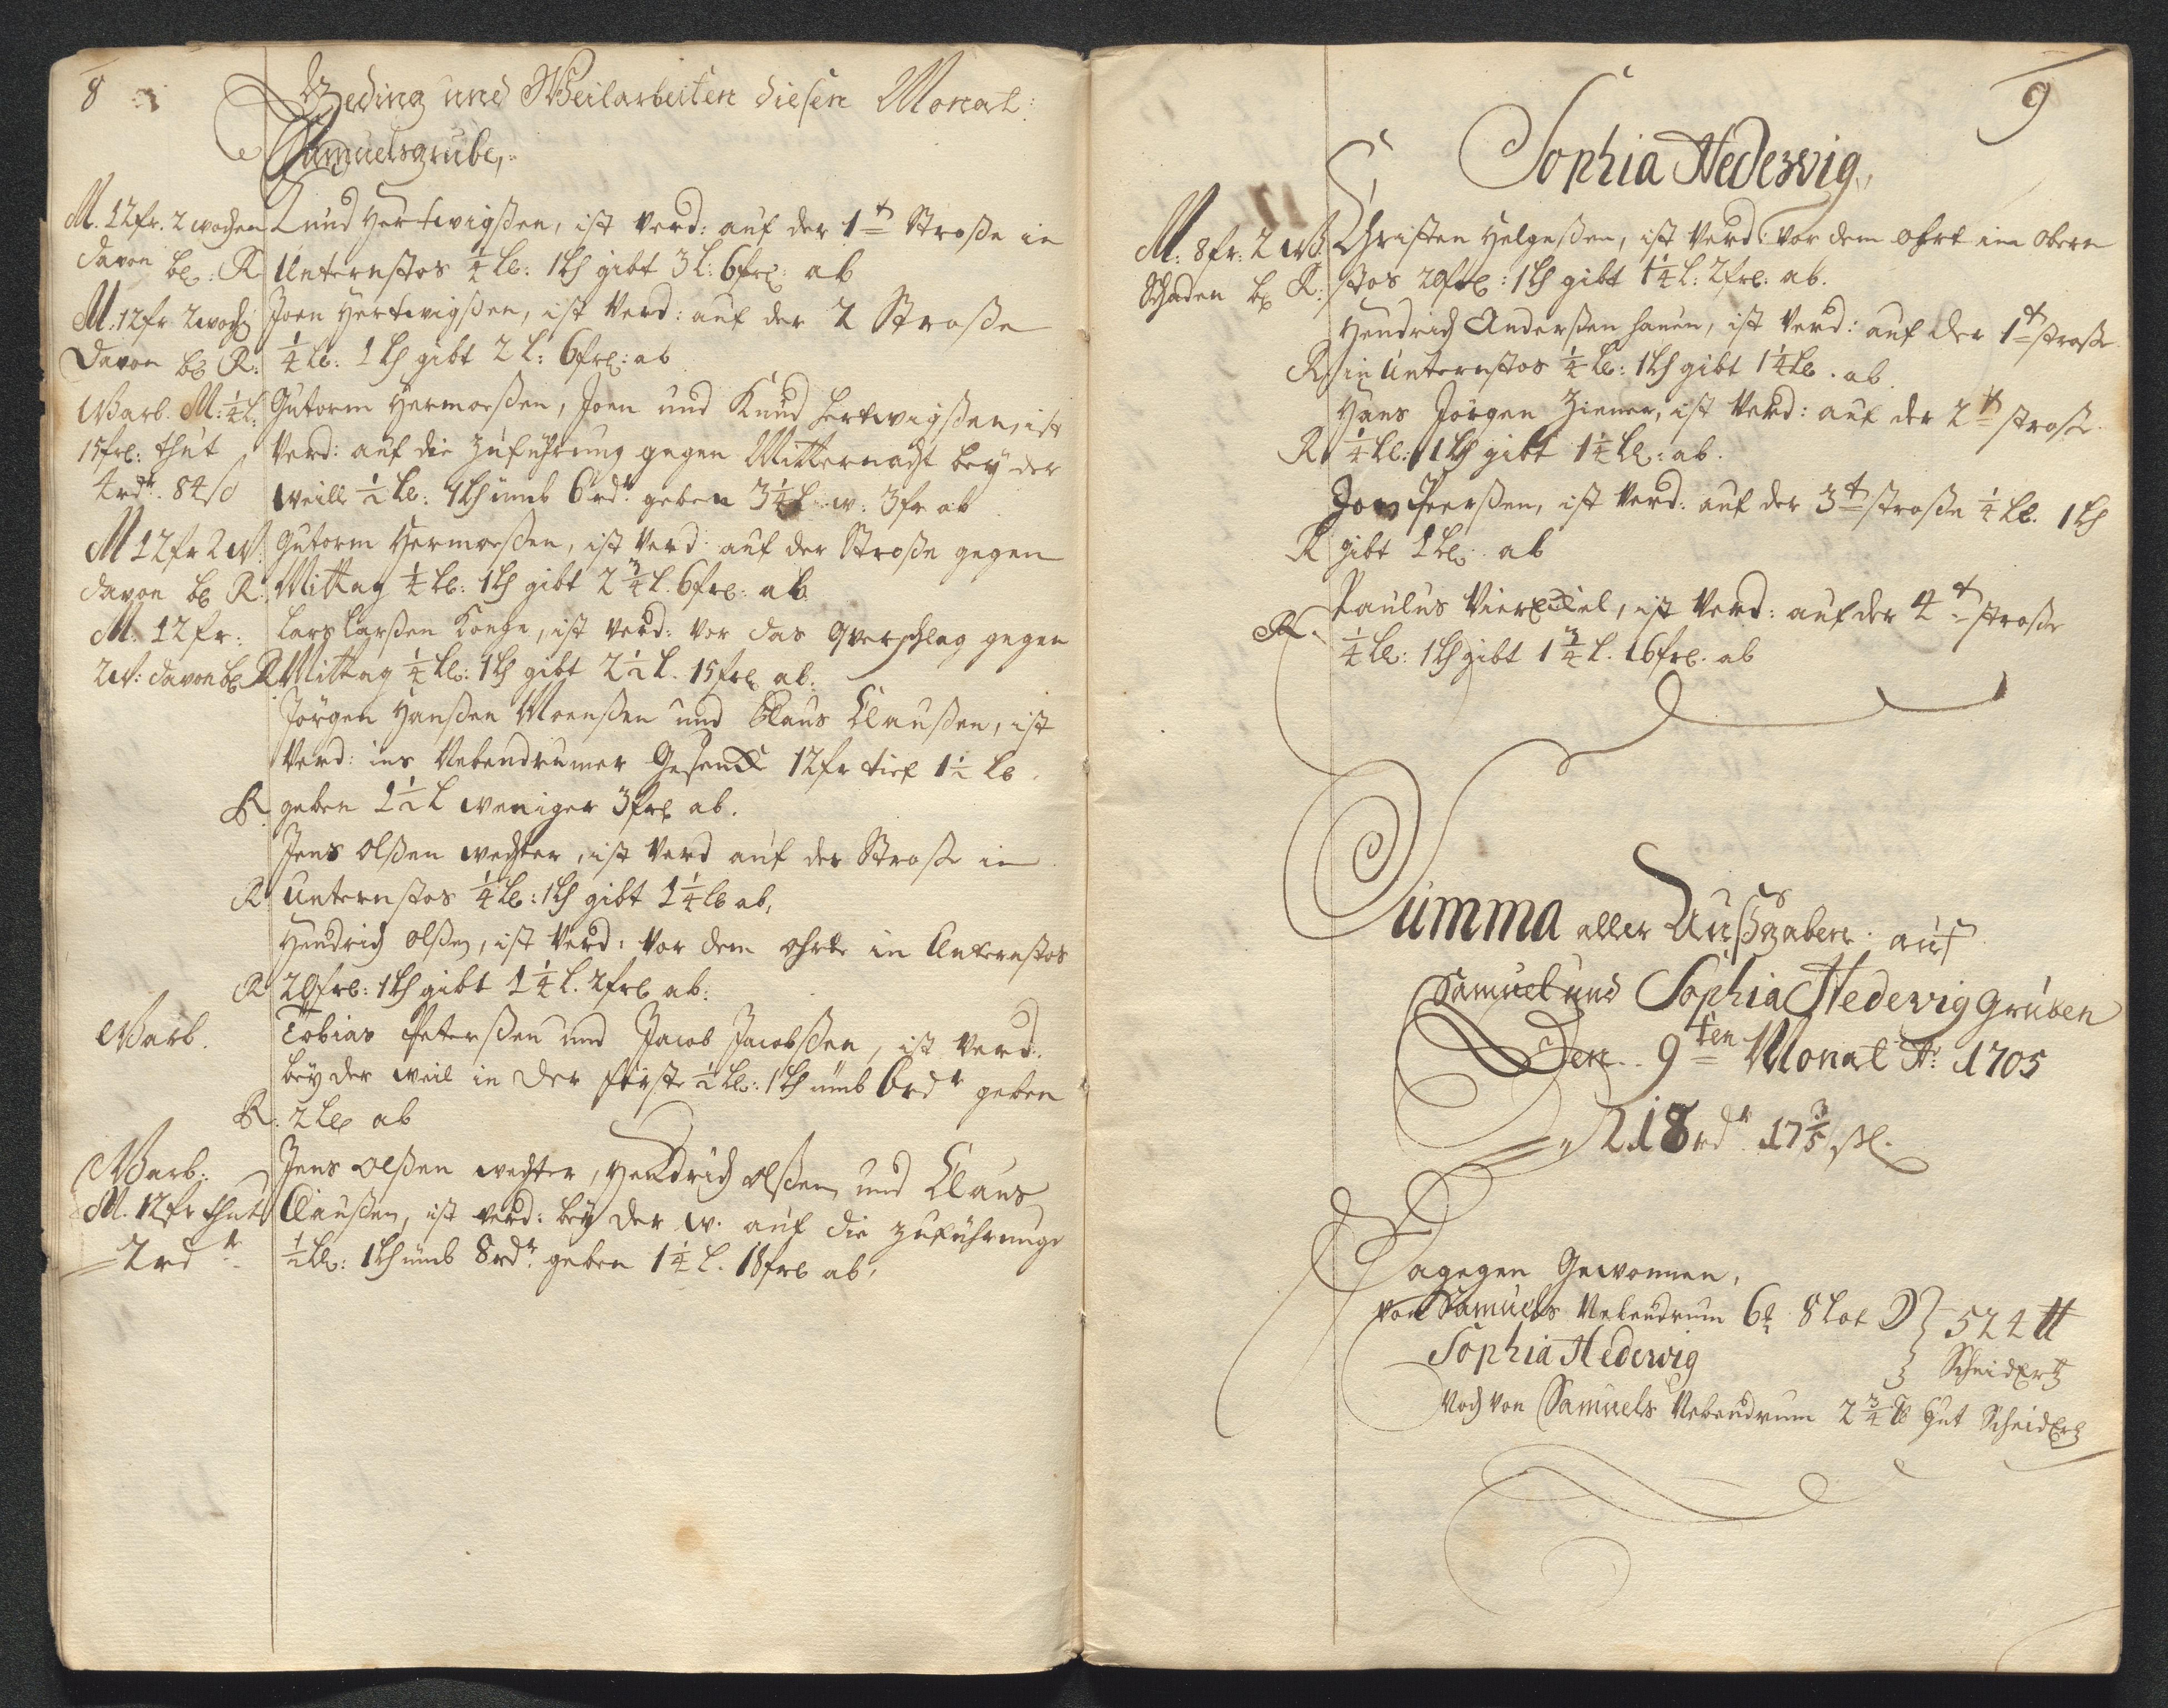 8
Geding und Weilarbeiten diesen Monat:
Samuelsgrube,
M. 12fr. 2 wochen
davon bl: R
Knud Hertwigßen, ist verd: auf der 1t Stroße in
Unternstos ¼ Lb: 1Lh gibt 3 l: 6frl: ab
M. 12fr 2woch
davon bl R:
Joen Hertwigßen, ist verd: auf der 2 Stroße
¼ Lb: 1 Lh gibt 2 l: 6frl: ab
Warb. M: ¼ l:
15frl: thut
4rdr. 84ß
Gutorm Hermoeßen, Joen und Knud Hertwigßen, ist
verd: auf die Zuführung gegen Mitternacht bey der
weill ½ Lb: 1Lh umb 6rdr. geben 3¼ l w: 3fr ab
M 12fr 2W.
davon bl R.
Gutorm Hermoeßen, ist verd: auf der Stroße gegen
Mittag ¼ Lb: 1Lh gibt 2¾ l. 6frl: ab.
M: 12fr:
2W: davon bl R
Lars Larßen Konge, ist verd: vor das Qverschlag gegen
Mittag ¼ Lb: 1Lh gibt 2½ l. 15frl ab.
Jörgen Hanßen Moenßen und Claus Claußen, ist
verd: ins Nebendrumer Gesenck 12fr tief 1½ Lb
R. geben 1½ l weniger 3frl ab.
Jens Olßen wechter, ist verd auf der Stroße in
R Unternstos ¼ Lb: 1Lh gibt 1¼ lb ab,
Hendrich Olßen, ist verd: vor dem ohrte in Unternstos
R 20frl: 1Lh gibt 1¼ l. 2frl ab:
Warb.
Tobias Peterßen und Jacob Jacobßen, ist verd:
bey der weil in der förste ½ Lb: 1Lh umb 6rdr geben
R: 2 Lb ab
Warb:
M. 12fr thut
2rdr
Jens Olßen wechter, Hendrich Olßen und Claus
Claußen, ist verd: bey der w. auf die zuführunge
½ Lb: 1Lh umb 8rdr. geben 1¼ l. 18frl ab,
9
Sophia Hedewig,
M: 8fr: 2 W
Schaden bl R:
Christen Helgeßen, ist verd: vor dem ohrt im obern
stos 20frl: 1Lh gibt 1¼ l: 2frl: ab.
Hendrich Anderßen hauen, ist verd: auf der 1t stroße
R in Unternstos ¼ Lb: 1Lh gibt 1¼ Lb. ab.
Hans Jörgen Ziener, ist verd: auf der 2t stroß
R ¼ Lb: 1Lh gibt 1¼ Lb: ab.
Jon Peerßen, ist verd: auf der 3t stroße ¼ Lb. 1Lh
R gibt 1 Lb: ab
Paulus Viereckel, ist verd: auf der 4t stroße
R. ¼ Lb: 1Lh gibt 1¾ l. 16frl. ab
Summa aller Außgaben auf
Samuel und Sophia Hedewig Gruben
Den 9ten Monat Ao: 1705
218rdr. 17⅗ ßl.
Dagegen Gewonnen,
von Samuels Nebendrum 8 Lot 524 ℔
Sophia Hedewig Scheid Ertz
Noch von Samuels Nebendrum 2¾ ℔ Gut Scheid Ertz